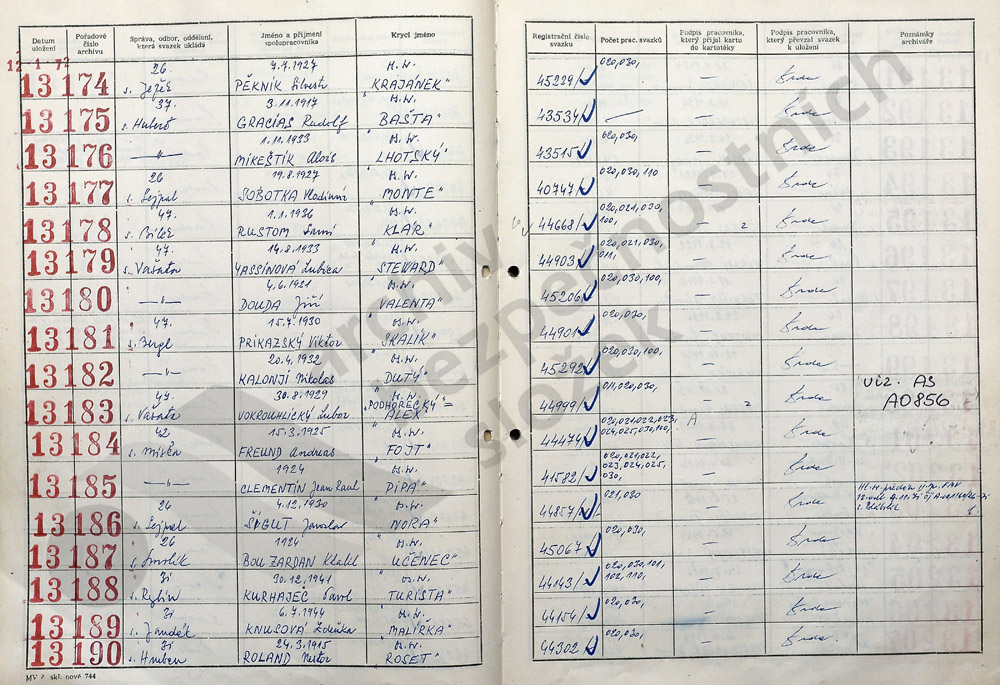 Datum uložení
Pořadové číslo archivu
Správa, odbor, oddělení, která svazek ukládá
Jméno a příjmení spolupracovníka
Krycí jméno
Registrační číslo svazku
Počet prac. svazků
Podpis pracovníka, který přijal kartu do kartotéky
Podpis pracovníka, který převzal svazek k uložení
Poznámky archiváře
26. 7.7.1927 H.W. 020,030,
13174 s. Ježek PĚKNÍK "KRAJÁNEK" 45229/ —
37. 3.11.1917 H.W.
13175 GRACIAS Rudolf "BAŠTA" 43534/ —
1.11.1933 H.W. 020,030,
13176 —"— MIKEŠTÍK Alois "LHOTSKÝ" 43515/ —
26 19.8.1927 H.W. 020,030,110
13177 s. Sejpal SOBOTKA Vladimír "MONTE" 40747/ —
47. 1.1.1936 H.W. 020,021,030,
13178 s. Bílek RUSTOM "KLÁR" 44668/ 100, — 2
47. 14.8.1933 H.W. 020,021,030,
13179 s. Vašata YASSINOVÁ Ľubica "STEWARD" 44903/ 011, —
4.6.1921 H.W. 020,030,100,
13180 —"— DOUDA Jiří "VALENTA" 45206/ —
47. 15.7.1930 H.W. 020,030,
13181 s. Bergl PRIKAZSKÝ Viktor "SKALÍK" 44901/ —
20.4.1932 H.W. 020,030,100,
13182 —"— KALONJI Nikolas "DUTÝ" 45292/ —
47. 30.8.1929 "PODHORECKÝ"= 011,020,030, viz. AS
13183 s. Vašata VOKROUHLICKÝ Lubor ALEX" 44999/ — 2 A0856
42 15.3.1925 H.W. 020,021,022,023, A
13184 FREUND Andreas "FOJT" 44474/ 024,025,030,100, —
1924 H.W. 020,021,022,
13185 —"— CLEMENTÍN Jean Raul "PIPA" 41582/ 023,024,025, —
030,
26 4.12.1930 H.W. 021,030
13186 s. Sejpal ŠIGUT Jaroslav "NORA" 44857/ —
26 1924 H.W. 020,030,
13187 s. Smolík BOUZARDAN "UČENEC" 45067/ —
31 30.12.1941 H.W. 020,030,101,
13188 s. Rybín KURHAJEČ Pavol "TURISTA" 44143/ 102,110, —
31 6.7.1944 H.W. 020,030,
13189 KNUSOVÁ Zdeňka "MALÍŘKA" 44154/ —
31 24.3.1915 H.W. 020,030,
13190 s. Hruben ROLAND Nestor "ROSET" 44302/ —
MV č. skl. nové 744
archiv
bezpečnostních
složek